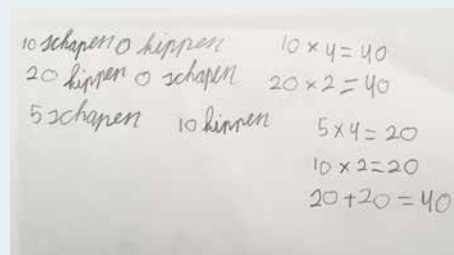 10 schapen 0 kippen 10 × 4 = 40
20 kippen 0 schapen 20 × 2 = 40
5 schapen 10 kippen 5 × 4 = 20
10 × 2 = 20
20 + 20 = 40